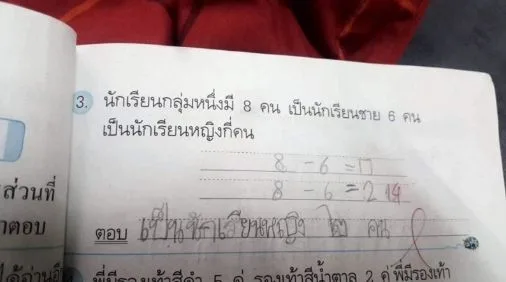 3. นักเรียนกลุ่มหนึ่งมี 8 คน เป็นนักเรียนชาย 6 คน
เป็นนักเรียนหญิงกี่คน
8 - 6 = □
8 - 6 = 2
ส่วนที่
ตอบ
ตอบ เป็นนักเรียนหญิง คน
พี่มีรองเท้าสีดำ 5 คู่ รองเท้าสีน้ำตาล 2 คู่ พี่มีรองเท้า